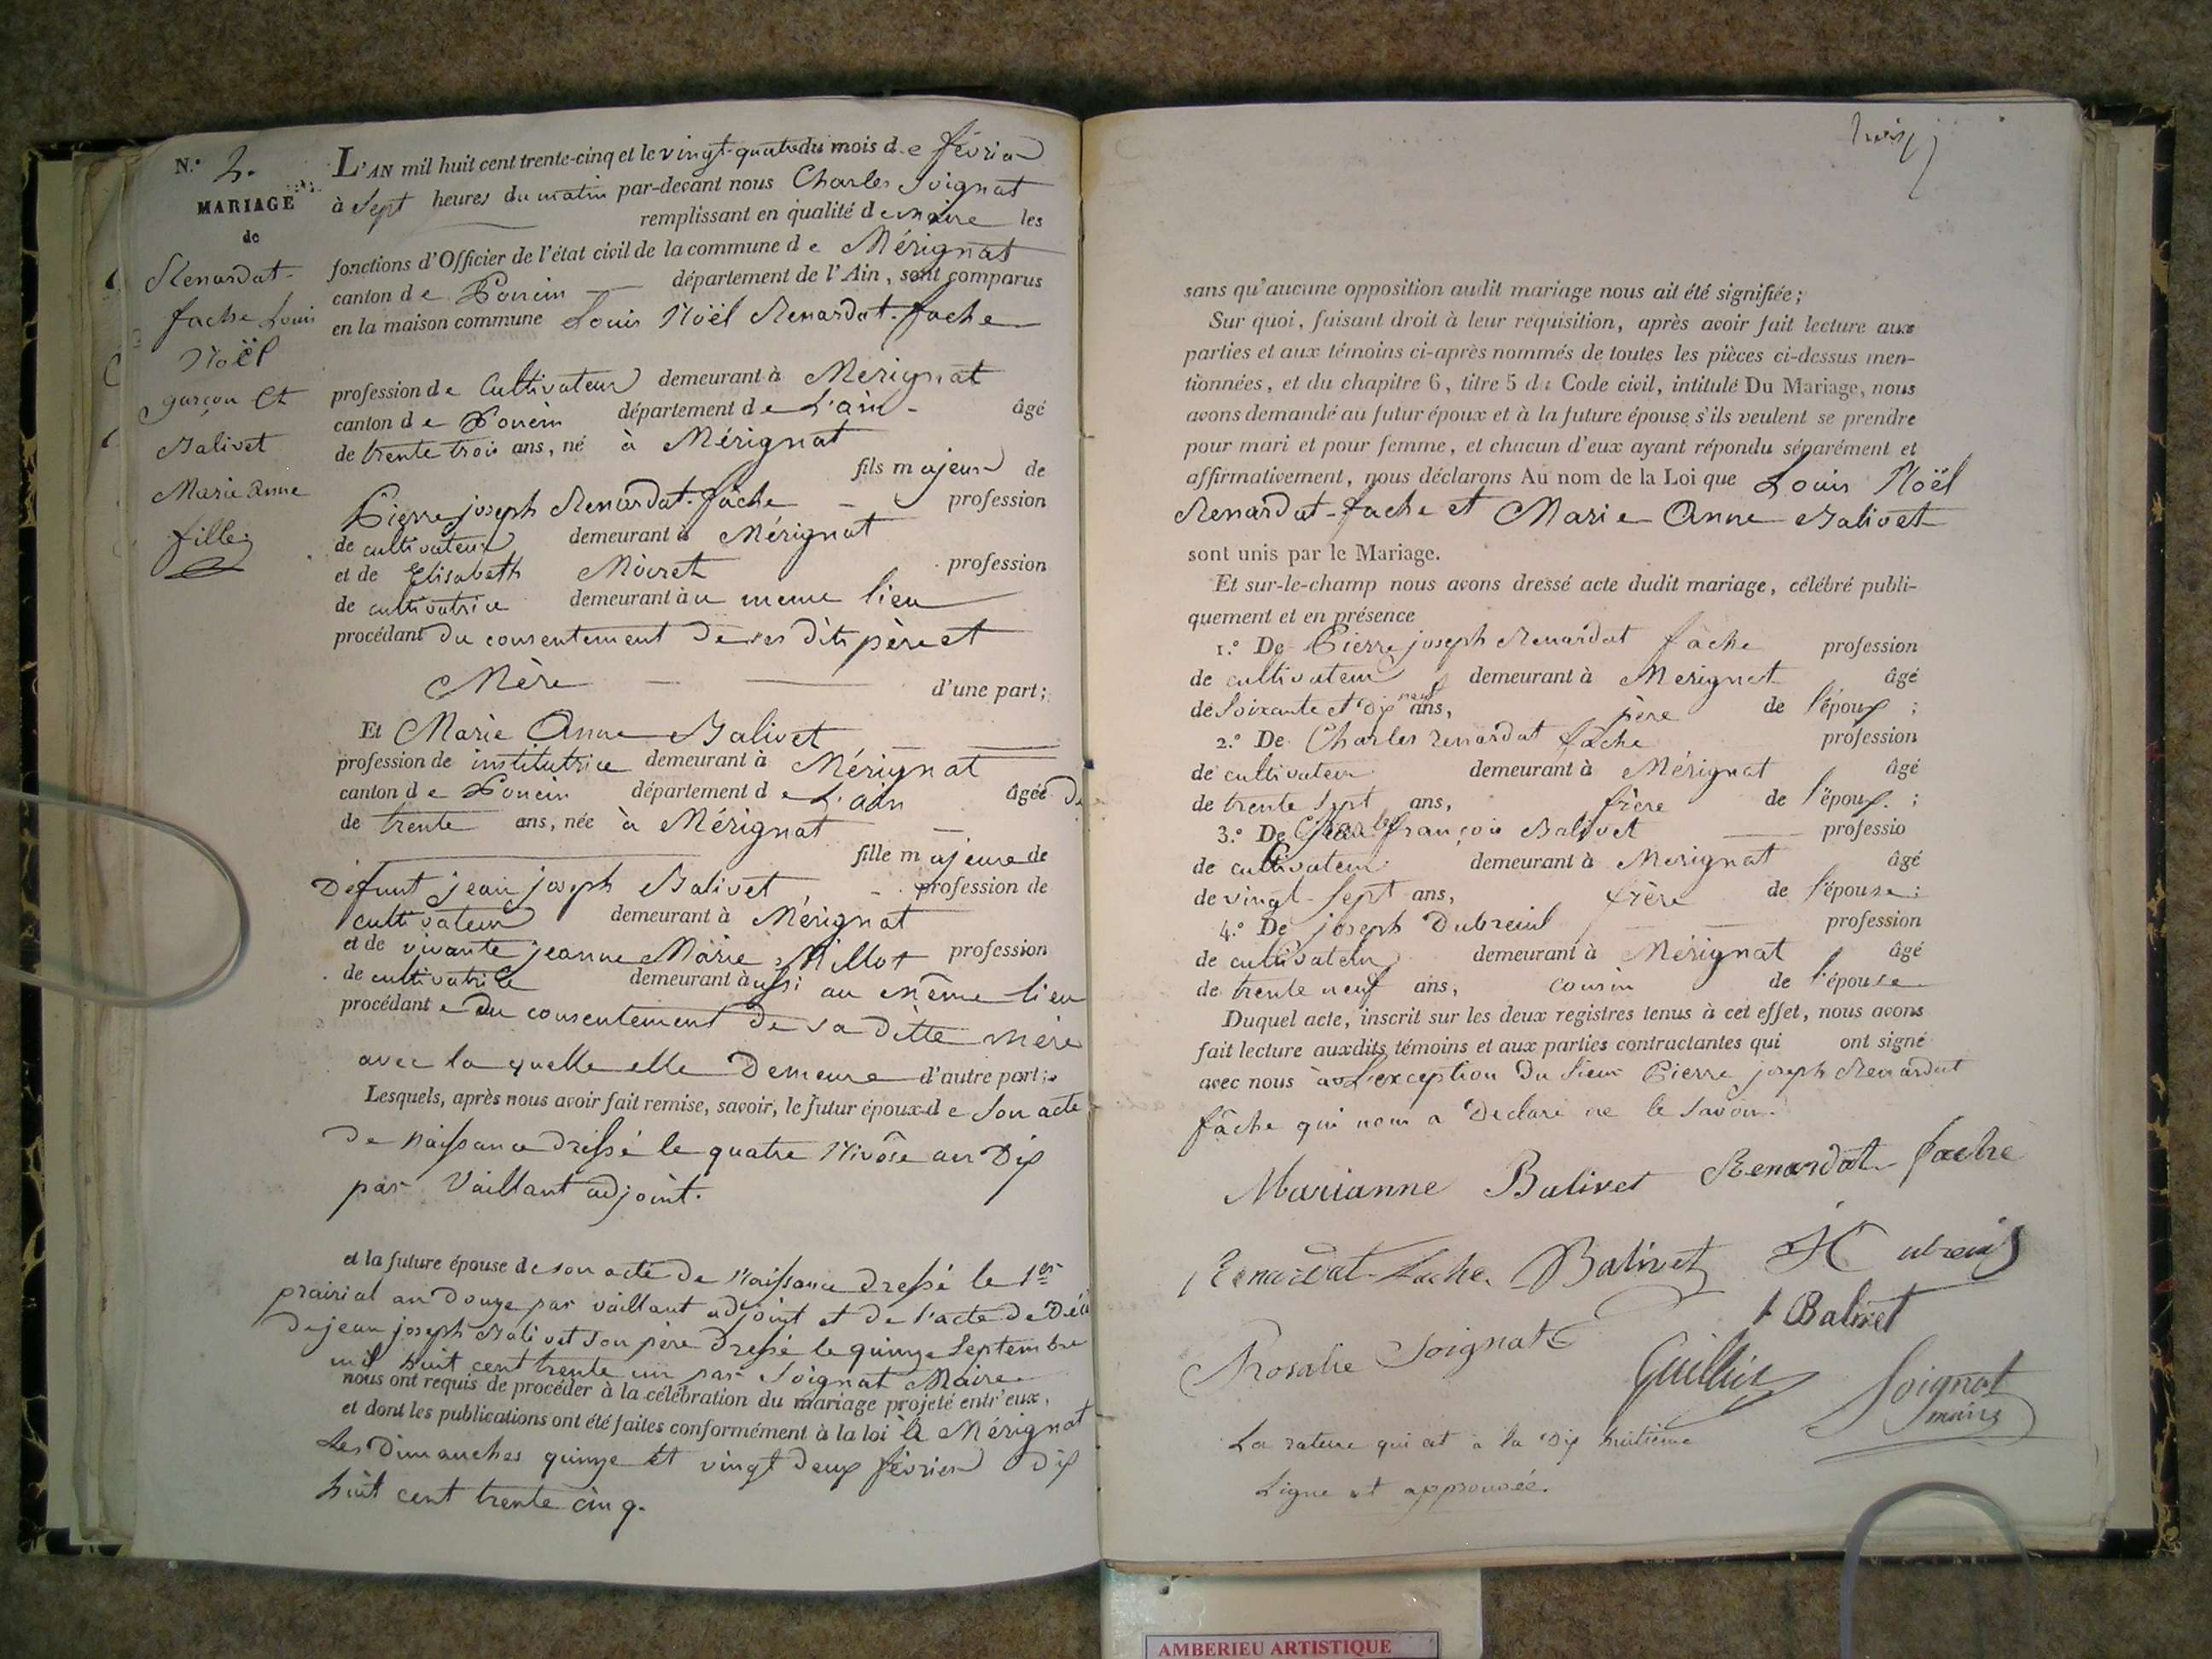 N.° 2.
MARIAGE
de
Renardat-
fache Louis
Noël
garçon Et
Balivet
Marie Anne
fille
L'AN mil huit cent trente-cinq et le vingt-quatre du mois de février
à Sept heures du matin par-devant nous Charles Soignat
remplissant en qualité de maire les
fonctions d'Officier de l'état civil de la commune de Mérignat
canton de Poncin département de l'Ain, sont comparus
en la maison commune Louis Noël Renardat-fache
profession de Cultivateur demeurant à Mérignat
canton de Poncin département de L'ain - âgé
de trente trois ans, né à Mérignat
fils majeur de
Pierre joseph Renardat-fâche - profession
de cultivateur demeurant à Mérignat
et de Elisabeth Moiret profession
de cultivatrice demeurant au meme lieu
procédant du consentement de ses dits père et
Mère d'une part;
Et Marie Anne Balivet
profession de institutrice demeurant à Mérignat
canton de Poncin département de L'ain âgée de
de trente ans, née à Mérignat
fille majeure de
Défunt jean joseph Balivet profession de
cultivateur demeurant à Mérignat
et de vivante jeanne Marie Millot profession
de cultivatrice demeurant aussi au même lieu
procédante du consentement de sa ditte mère
avec la quelle elle Demeure d'autre part;
Lesquels, après nous avoir fait remise, savoir, le futur époux de son acte
de Naissance dressé le quatre Nivôse an Dix
par Vaillant adjoint.
et la future épouse de son acte de Naissance dressé le 1er
prairial an douze par vaillant adjoint et de l'acte de Décè
de jean joseph Balivet son père dressé le quinze Septembre
mil huit cent trente un par Soignat Maire
nous ont requis de procéder à la célébration du mariage projeté entr'eux,
et dont les publications ont été faites conformément à la loi à Mérignat
Les Dimanches quinze et vingt deux février dix
huit cent trente cinq.
sans qu'aucune opposition audit mariage nous ait été signifiée;
Sur quoi, faisant droit à leur réquisition, après avoir fait lecture aux
parties et aux témoins ci-après nommés de toutes les pièces ci-dessus men-
tionnées, et du chapitre 6, titre 5 du Code civil, intitulé Du Mariage, nous
avons demandé au futur époux et à la future épouse s'ils veulent se prendre
pour mari et pour femme, et chacun d'eux ayant répondu séparément et
affirmativement, nous déclarons Au nom de la Loi que Louis Noël
Renardat-fache et Marie Anne Balivet
sont unis par le Mariage.
Et sur-le-champ nous avons dressé acte dudit mariage, célébré publi-
quement et en présence
1.° De Pierre joseph Renardat fâche profession
de cultivateur demeurant à Mérignat âgé
de Soixante et dix neuf ans, père de l'époux ;
2.° De Charles renardat fâche profession
de cultivateur demeurant à Mérignat âgé
de trente Sept ans, frère de l'époux. ;
3.° De françois Balivet professio
de cultivateur demeurant à Mérignat âgé
de vingt-sept ans, frère de l'épouse;
4.° De joseph Dubreuil profession
de cultivateur demeurant à Mérignat âgé
de trente neuf ans, cousin de l'épouse
Duquel acte, inscrit sur les deux registres tenus à cet effet, nous avons
fait lecture auxdits témoins et aux parties contractantes qui ont signé
avec nous à L'exception du Sieur Pierre joseph Renardat
fâche qui nous a Declaré ne le savoir.
Marianne Balivet Renardat fache
Renardat-Fache Balivet
Balivet
Rosalie Soignat
Guillin Soignat
maire
La rature qui est à la dix huitième
Ligne est approuvée.
AMBERIEU ARTISTIQUE